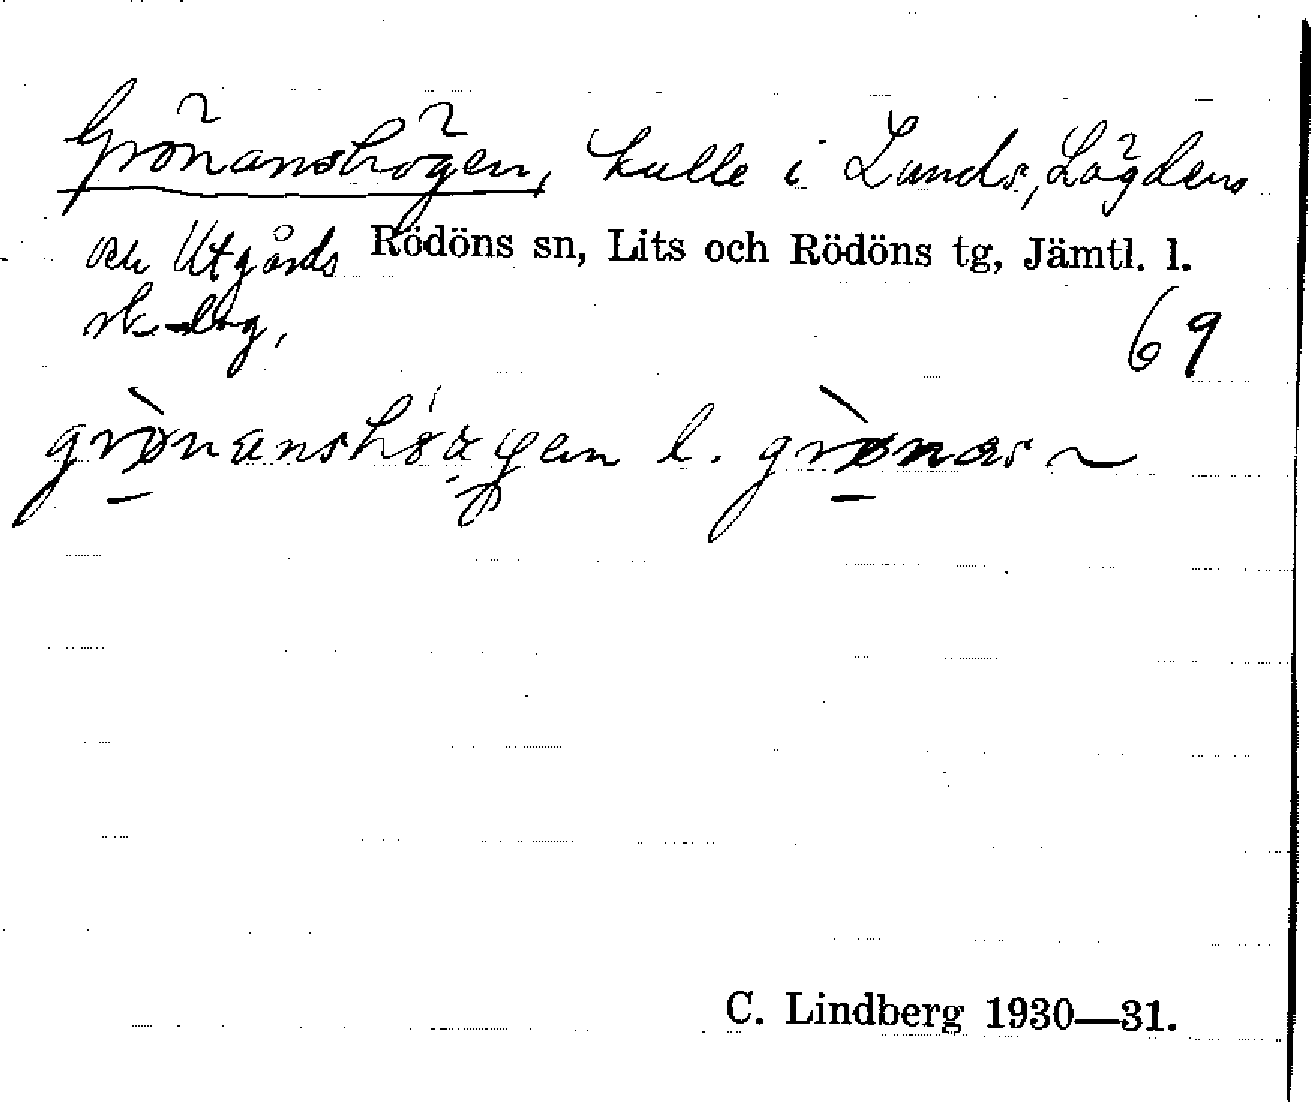 Grönanshögen, kulle i Lunds, Lögdens
och Utgårds Rödöns sn, Lits och Rödöns tg, Jämtl. l.
sk-lag,
69
grònanshö́gen l. grònas ~
C. Lindberg 1930—31.